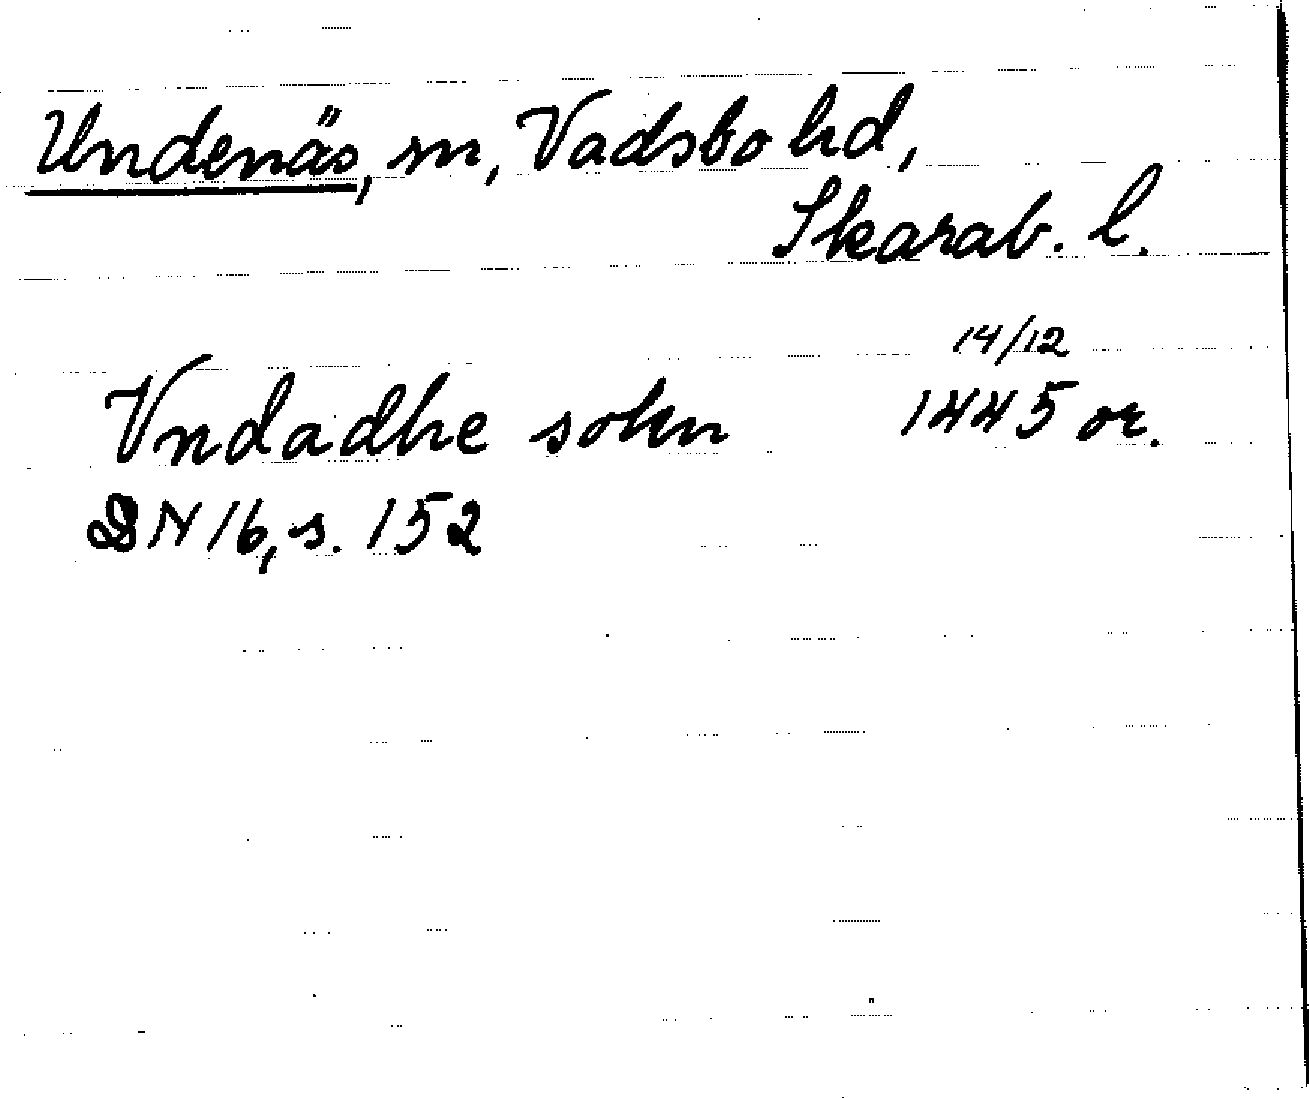 Undenäs, sn, Vadsbo hd,
Skarab. l.
14/12
Vndadhe sokn 1445 or.
DN 16, s. 152